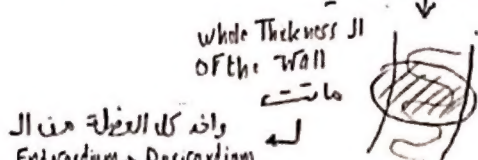 whole Thickness ال
OF the Wall
ماتت
واخد كل العضلة من ال
Endocardium → Pericardium